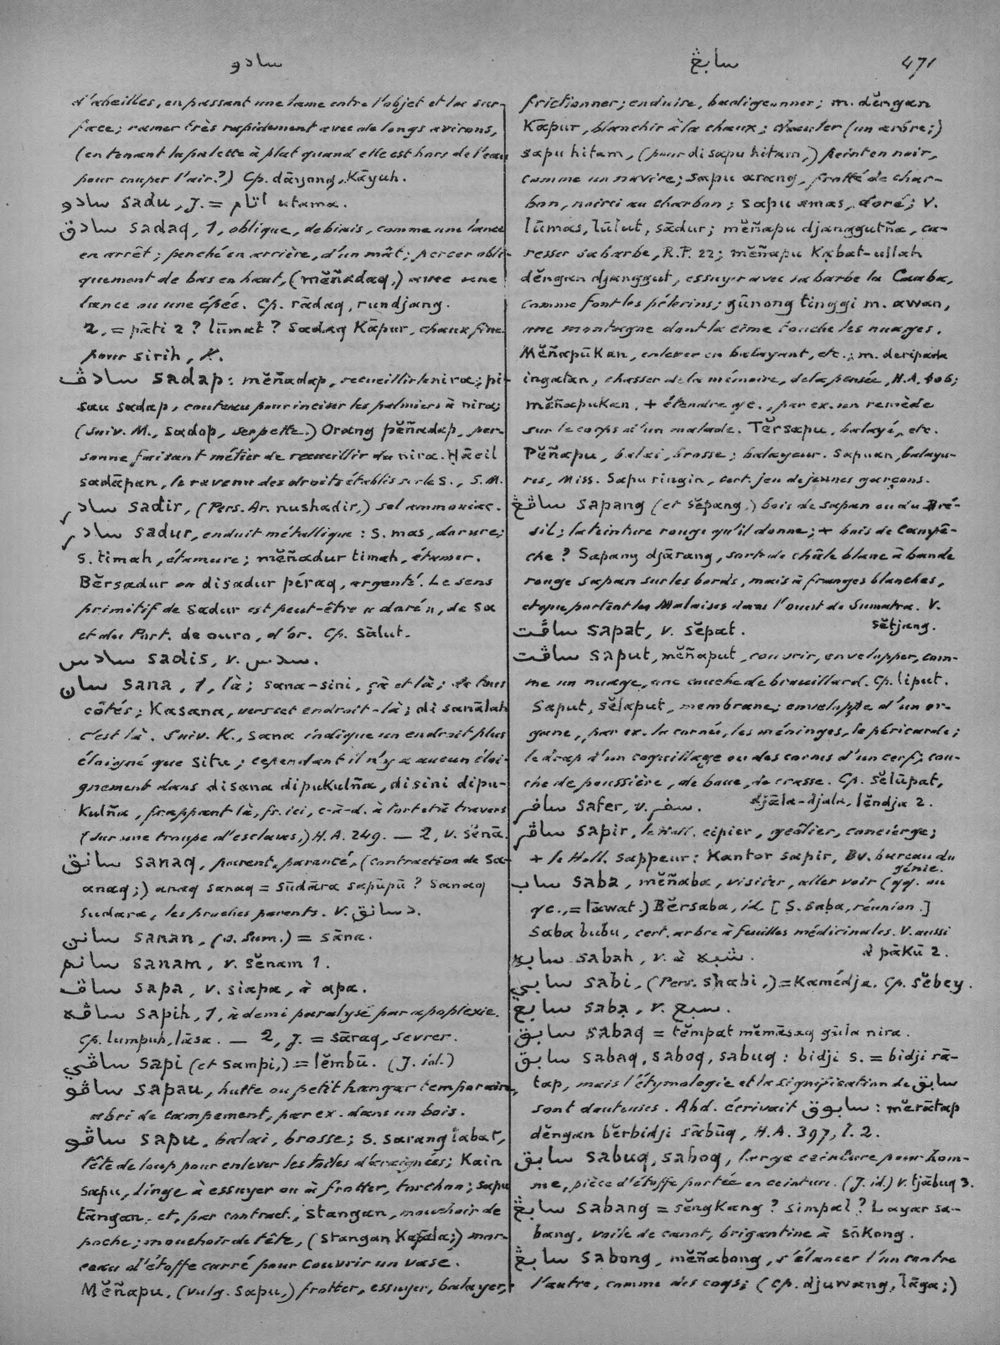 سادو
سابڠ
471
d'abeilles, en passant une lame entre l'objet et la sur-
face; ramer très rapidement avec de longs avirons,
(en tenant la palette à plat quand elle est hors de l'eau
pour couper l'air?) Cp. dāyong, Kāyuh.
سادو sadu, J. = اتام utama.
سادق sadaq, 1, oblique, de biais, comme une lance
en arrêt; penché en arrière, d'un mât; percer obli-
quement de bas en haut, (mĕñadaq,) avec une
lance ou une épée. Cp. rādaq, rundjang.
2, = pāti 2? lūmat? Sadaq Kāpur, chaux fine
pour sirih, K.
سادڤ sadap: mĕñadap, recueillir le nira; pi-
sau sadap, couteau pour inciser les palmiers à nira;
(suiv. M., sadap, serpette.) Orang pĕñadap, per-
sonne faisant métier de recueillir du nira. Hācil
sadāpan, le revenu des droits établis sur le s., S.M.
سادر sadir, (Pers. Ar. nushadir,) sel ammoniac.
سادر sadur, enduit métallique: s. mas, dorure;
s. timah, étamure; mĕñadur timah, étamer.
Bĕrsadur ou disadur péraq, argenté. Le sens
primitif de sadur est peut-être a dorén, de sa
et du Port. de ouro, d'or. Cp. Sālut.
سادس sadis, v. سدس.
سان sana, 1, là; sana-sini, çà et là; de tous
côtés; Kasana, vers cet endroit-là; di sanālah
c'est là. Suiv. K., sana indique un endroit plus
éloigné que situ; cependant il n'y a aucun éloi-
gnement dans disana dipuKulña, disini dipu-
Kulña, frappant là, fr. ici, c-à-d. à tort et à travers
(sur une troupe d'esclaves,) H.A. 249. — 2, v. sĕna.
سانق sanaq, parent, parenté, (contraction de sa-
anaq;) anaq sanaq = sūdāra sapūpū? Sanaq
sudara, les proches parents. V. دسانق.
سانن sanan, (o. Sum.) = sāna.
سانم sanam, v. sĕnam 1.
ساڤ sapa, v. siapa, à apa.
ساڤه sapih, 1, à demi paralysé par apoplexie.
Cp. lumpuh, lāsa. — 2, J. = sāraq, sevrer.
ساڤي sapi (et sampi,) = lĕmbū. (J. id.)
ساڤو sapau, hutte ou petit hangar temporaire,
abri de campement, par ex. dans un bois.
ساڤو sapu, balai, brosse; s. sarang labat,
tête de loup pour enlever les toiles d'araignées; Kain
sapu, linge à essuyer ou à frotter, torchon; sapu
tāngan, et, par contract., stangan, mouchoir de
poche; mouchoir de tête, (stangan Kapāla;) mor-
ceau d'étoffe carré pour couvrir un vase.
Mĕñapu, (vulg. sapu,) frotter, essuyer, balayer,
frictionner; enduire, badigeonner; m. dĕngan
Kāpur, blanchir à la chaux; (un arbre;)
sapu hitam, (pour di sapu hitam,) peint en noir,
comme un navire; sapu arang, frotté de char-
bon, noirci au charbon; sapu amas, doré; v.
lūmas, lūlut, sādur; mĕñapu djanggutña, ca-
resser sa barbe, R.P. 22; mĕñapu Kabat-ullah
dĕngan djanggut, essuyer avec sa barbe la Caaba,
comme font les pèlerins; gūnong tinggi m. awan,
une montagne dont la cime touche les nuages.
MĕñapūKan, enlever en balayant, etc.; m. deripada
ingatan, chasser de la mémoire, de la pensée, H.A. 406;
mĕñapuKan, + étendre qc., par ex. un remède
sur le corps d'un malade. Tĕrsapu, balayé, etc.
Pĕñapu, balai, brosse; balayeur. Sapuan, balayu-
res, Miss. Sapu ringin, cert. jeu de jeunes garçons.
ساڤڠ sapang (et sĕpang,) bois de sapan ou du Bré-
sil; la teinture rouge qu'il donne; + bois de Campê-
che? Sapang djārang, sorte de châle blanc à bande
rouge sapan sur les bords, mais à franges blanches,
et que portent les Malaises dans l'Ouest de Sumatra. V.
sĕtjang.
ساڤت sapat, v. sĕpat.
ساڤت saput, mĕñaput, couvrir, envelopper, com-
me un nuage, une couche de brouillard. Cp. liput.
Saput, sĕlaput, membrane; enveloppe d'un or-
gane, par ex. la cornée, les méninges, le péricarde;
le drap d'un coquillage ou des cornes d'un cerf; cou-
che de poussière, de boue, de crasse. Cp. sĕlūpat,
djāla-djala, lĕndja 2.
سافر safer, v. سفر.
ساڤر sapir, le Holl. cipier, geôlier, concierge;
+ le Holl. sappeur: Kantor sapir, Bv. bureau du
génie.
ساب saba, mĕñaba, visiter, aller voir (qq. ou
qc., = lāwat.) Bĕrsaba, id. [S. saba, réunion.]
Saba bubu, cert. arbre à feuilles médicinales. V. aussi
à pāKū 2.
سابه sabah, v. à شبه.
سابي sabi, (Pers. shabi,) = Kamédja. Cp. sĕbey.
سابع saba, v. سبع.
سابق sabaq = tĕmpat mĕmāsaq gūla nira.
سابق sabaq, saboq, sabuq: bidji s. = bidji rā-
tap, mais l'étymologie et la signification de سابق
sont douteuses. Abd. écrivait سابوق: mĕrātap
dĕngan bĕrbidji sābūq, H.A. 397, l. 2.
سابق sabuq, saboq, large ceinture pour hom-
me, pièce d'étoffe portée en ceinture. (J. id) v. tjābuq 3.
سابڠ sabang = sĕngKang? simpal? Layar sa-
bang, voile de canot, brigantine à sōKong.
سابڠ sabong, mĕñabong, s'élancer l'un contre
l'autre, comme des coqs; (Cp. djuwang, lāga;)